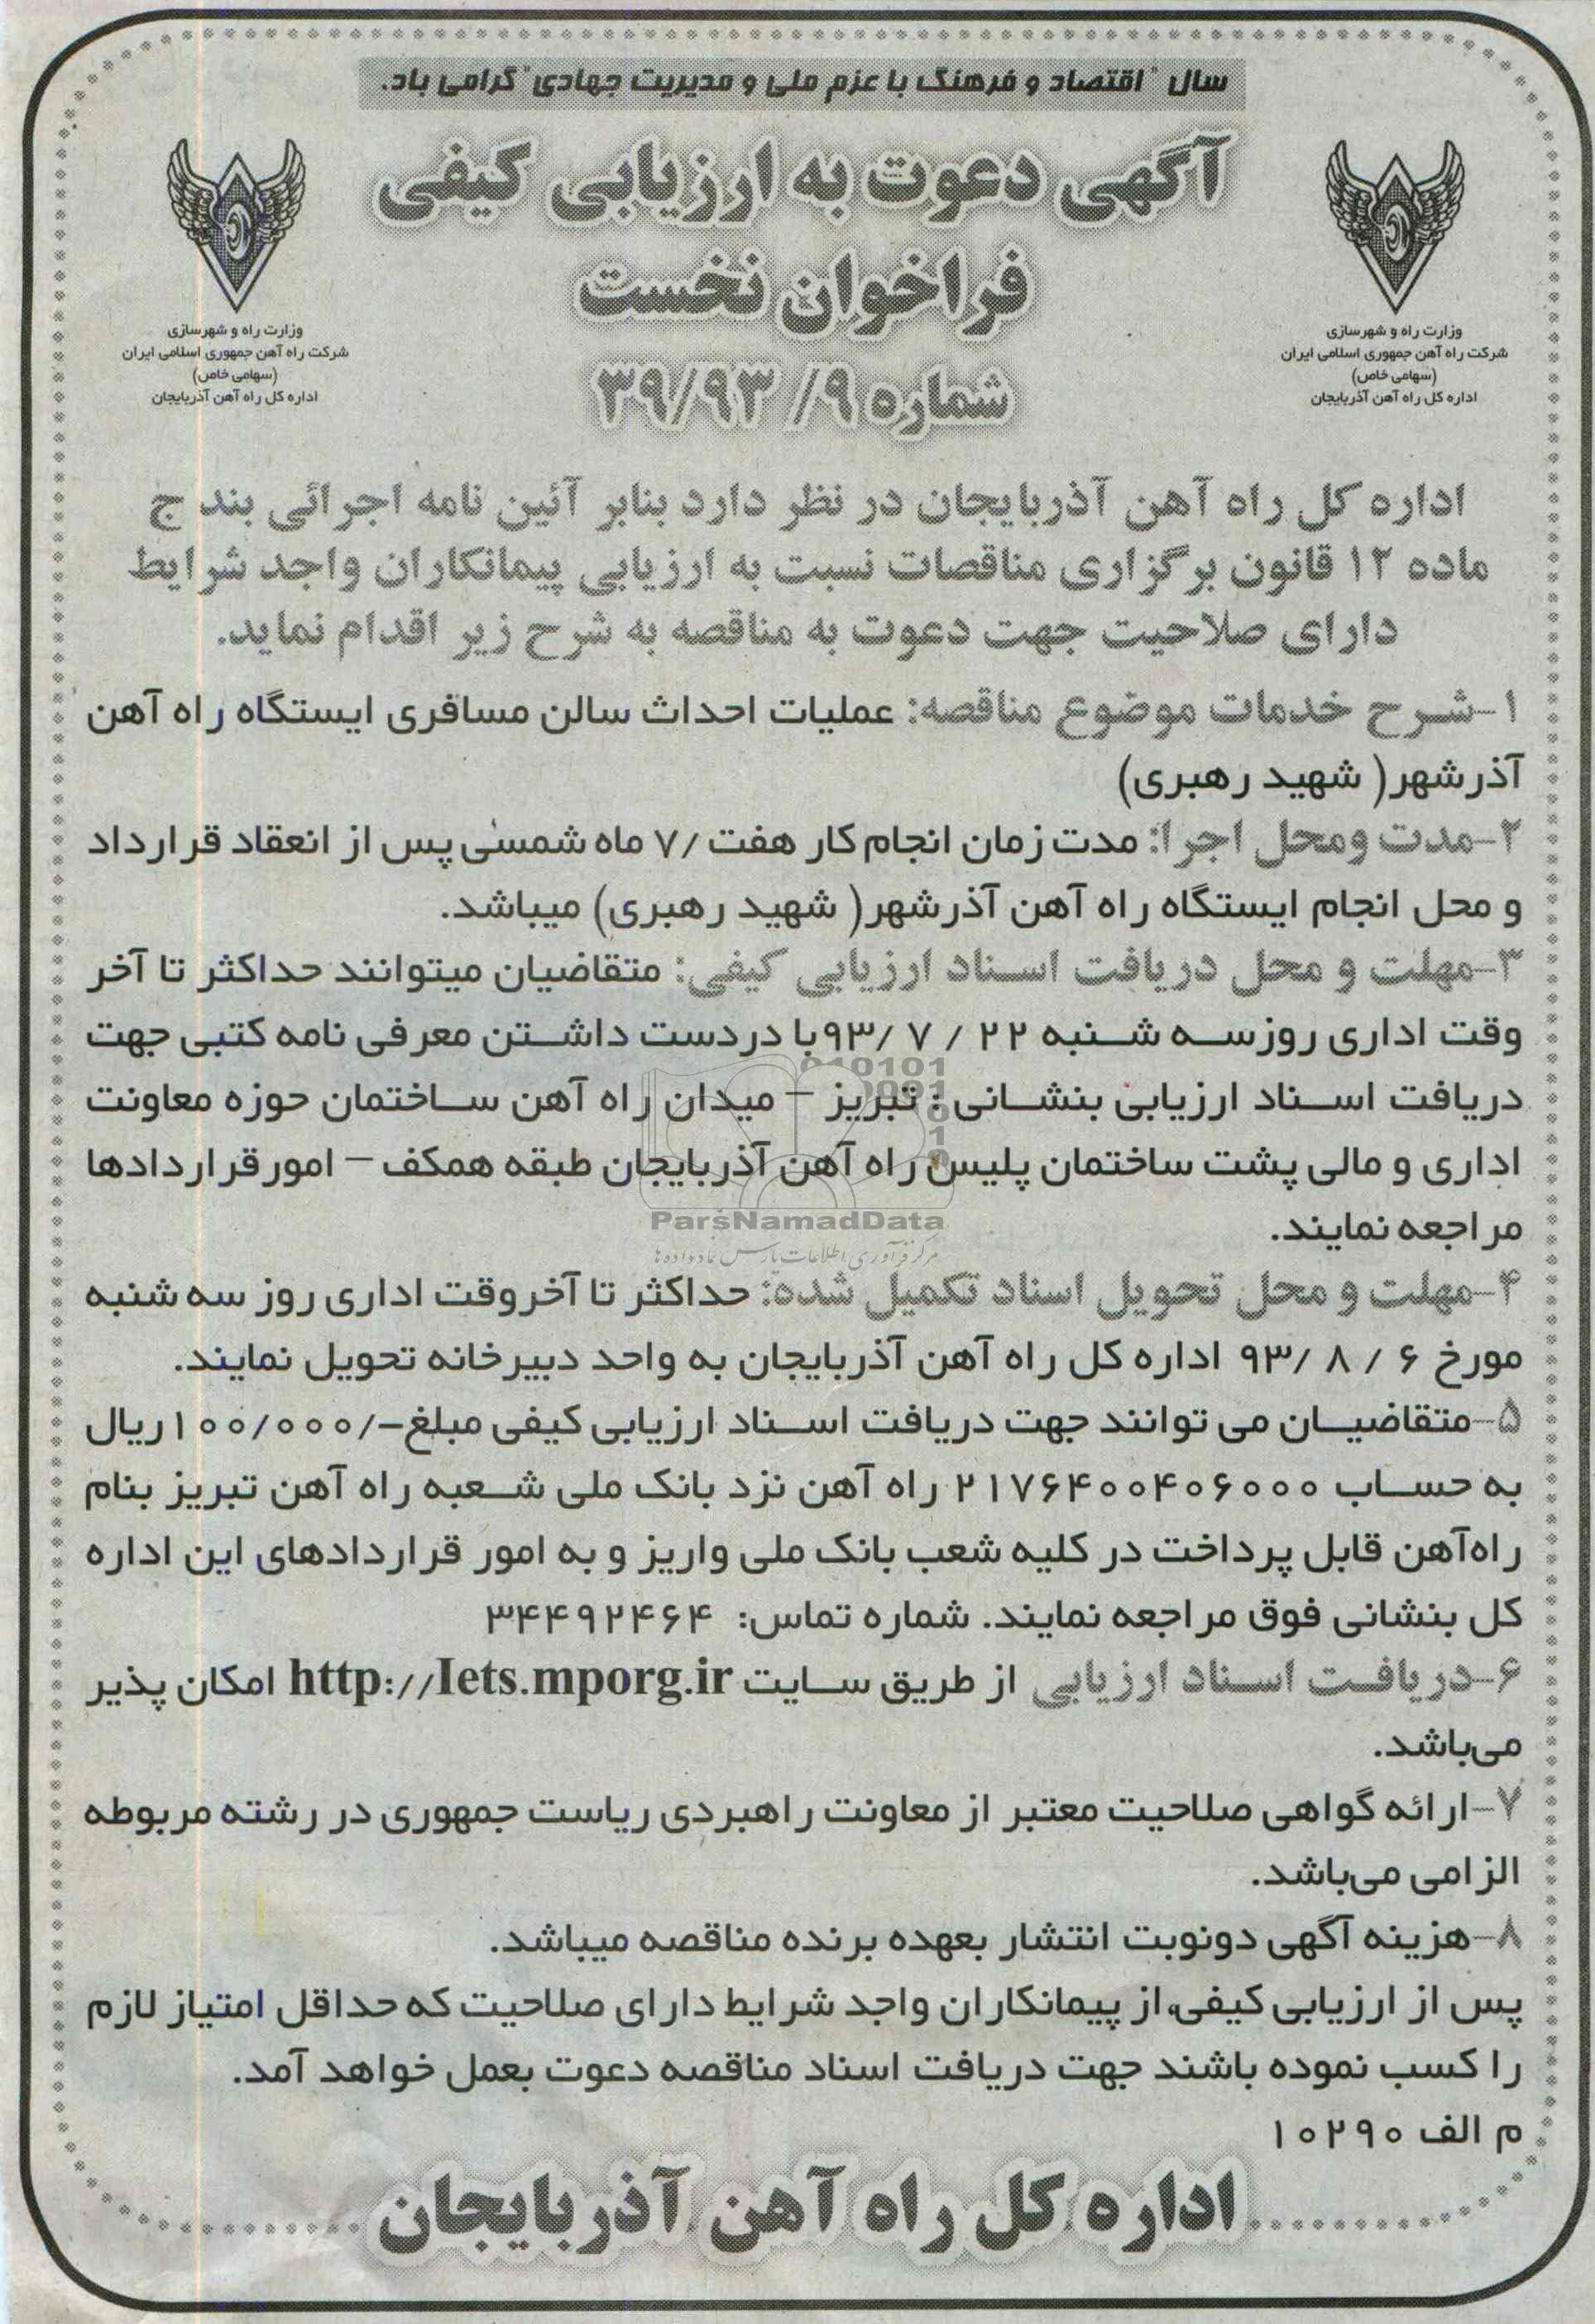 سال "اقتصاد و فرهنگ با عزم ملی و مدیریت جهادی" گرامی باد.
آگهی دعوت به ارزیابی کیفی
فراخوان نخست
شماره ۹/ ۳۹/۹۳
وزارت راه و شهرسازی
شرکت راه آهن جمهوری اسلامی ایران
(سهامی خاص)
اداره کل راه آهن آذربایجان
وزارت راه و شهرسازی
شرکت راه آهن جمهوری اسلامی ایران
(سهامی خاص)
اداره کل راه آهن آذربایجان
اداره کل راه آهن آذربایجان در نظر دارد بنابر آئین نامه اجرائی بند ج
ماده ۱۲ قانون برگزاری مناقصات نسبت به ارزیابی پیمانکاران واجد شرایط
دارای صلاحیت جهت دعوت به مناقصه به شرح زیر اقدام نماید.
۱-شرح خدمات موضوع مناقصه: عملیات احداث سالن مسافری ایستگاه راه آهن
آذرشهر( شهید رهبری)
۲-مدت ومحل اجرا: مدت زمان انجام کار هفت /۷ ماه شمسی پس از انعقاد قرارداد
و محل انجام ایستگاه راه آهن آذرشهر( شهید رهبری) میباشد.
۳-مهلت و محل دریافت اسناد ارزیابی کیفی: متقاضیان میتوانند حداکثر تا آخر
وقت اداری روزسه شنبه ۲۲ / ۷ /۹۳با دردست داشتن معرفی نامه کتبی جهت
دریافت اسناد ارزیابی بنشانی : تبریز – میدان راه آهن ساختمان حوزه معاونت
اداری و مالی پشت ساختمان پلیس راه آهن آذربایجان طبقه همکف – امورقراردادها
مراجعه نمایند.
۴-مهلت و محل تحویل اسناد تکمیل شده: حداکثر تا آخروقت اداری روز سه شنبه
مورخ ۶ / ۸ /۹۳ اداره کل راه آهن آذربایجان به واحد دبیرخانه تحویل نمایند.
۵-متقاضیان می توانند جهت دریافت اسناد ارزیابی کیفی مبلغ-/۱۰۰/۰۰۰ریال
به حساب ۲۱۷۶۴۰۰۴۰۶۰۰۰ راه آهن نزد بانک ملی شعبه راه آهن تبریز بنام
راه‌آهن قابل پرداخت در کلیه شعب بانک ملی واریز و به امور قراردادهای این اداره
کل بنشانی فوق مراجعه نمایند. شماره تماس: ۳۴۴۹۲۴۶۴
۶-دریافت اسناد ارزیابی از طریق سایت http://Iets.mporg.ir امکان پذیر
می‌باشد.
۷-ارائه گواهی صلاحیت معتبر از معاونت راهبردی ریاست جمهوری در رشته مربوطه
الزامی می‌باشد.
۸-هزینه آگهی دونوبت انتشار بعهده برنده مناقصه میباشد.
پس از ارزیابی کیفی، از پیمانکاران واجد شرایط دارای صلاحیت که حداقل امتیاز لازم
را کسب نموده باشند جهت دریافت اسناد مناقصه دعوت بعمل خواهد آمد.
م الف ۱۰۲۹۰
اداره کل راه آهن آذربایجان
ParsNamadData
مرکز فرآوری اطلاعات پارس نماد داده ها